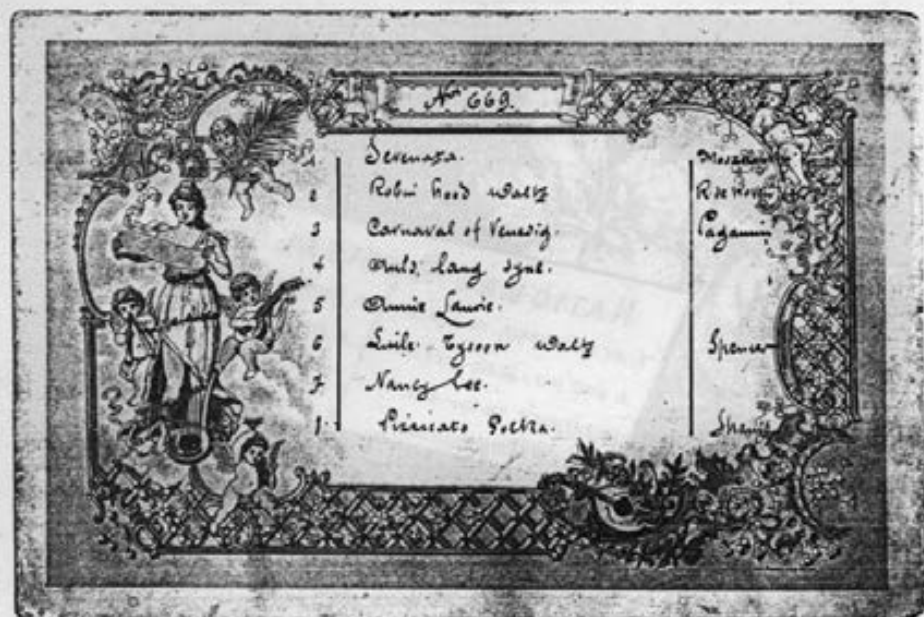 No 669.
1 Serenata. Moszkowsky
2 Robin hood Waltz R de Koven
3 Carnaval of Venedig. Paganini
4 Auld, lang syne.
5 Annie Laurie.
6 Tycoon Waltz Spencer
7 Nancy Lee.
Pizzicato Polka.